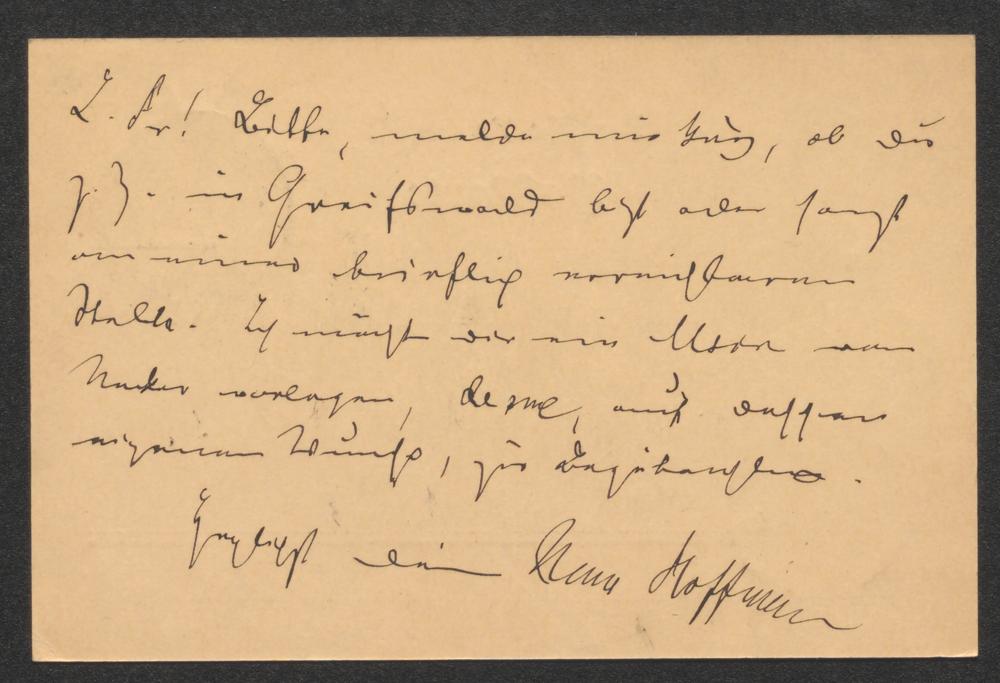 L. Fr! Bitte, melde mir kurz, ob du
z. Z. in Greifswald bist oder sonst
an einer brieflich erreichbaren
Stelle. Ich möcht dir ein Mscr von
Necker vorlegen, auch dessen
eigenen Wunsch, zur Begutachtung.
Herzlichst dein Hoffmann